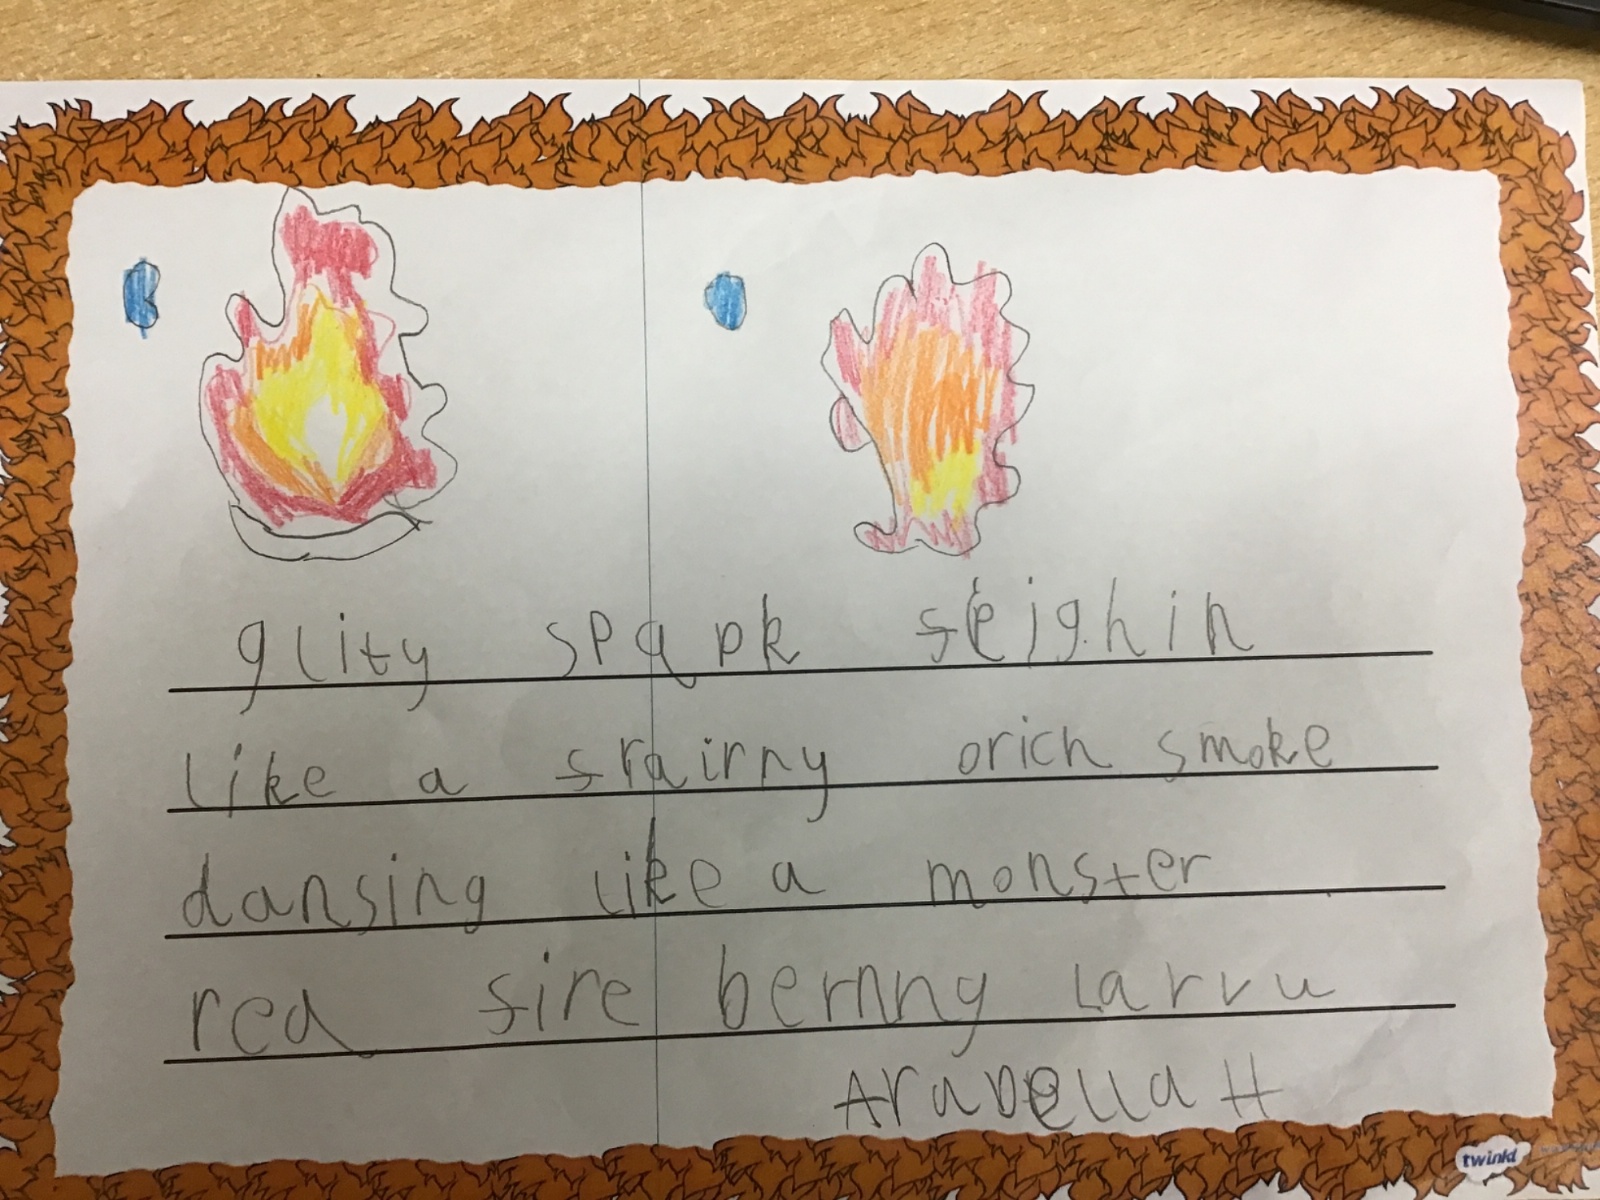 glity spark fleighin
like a frairny orich smoke
dansing like a monster
red fire bernng Larvu
Arabella H
twinkl